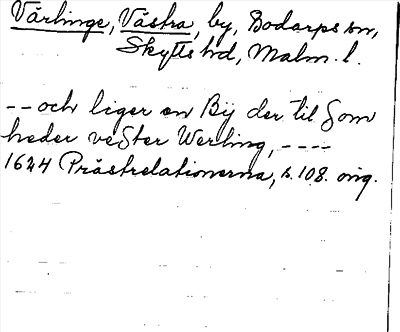 Värlinge, Västra, by, Bodarps sn,
Skytts hd, Malm. l.
-- och liger en Bÿ der til Som
heder veSter Werling, ----
1624 Prästrelationerna, s. 108. orig.